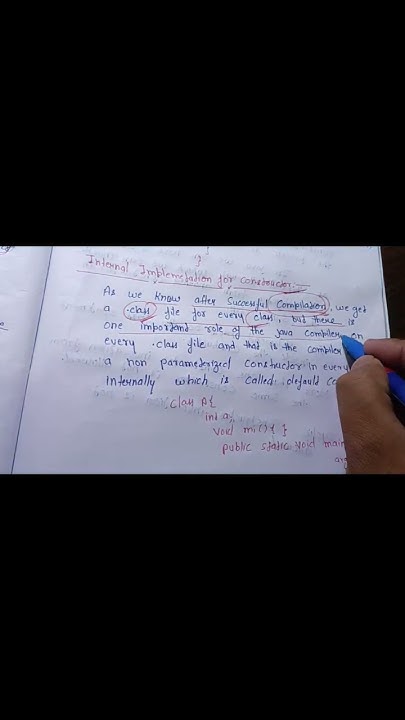 }
Internal Implemetation for Constructor.
As we know after Successful Compilation, we get
a .class file for every class, but there is
one important role of the java compiler on
every .class file and that is the compiler
a non parameterized constructor in every
internally which is called default co
class A{
int a;
void m1(){ }
public static void main
arg